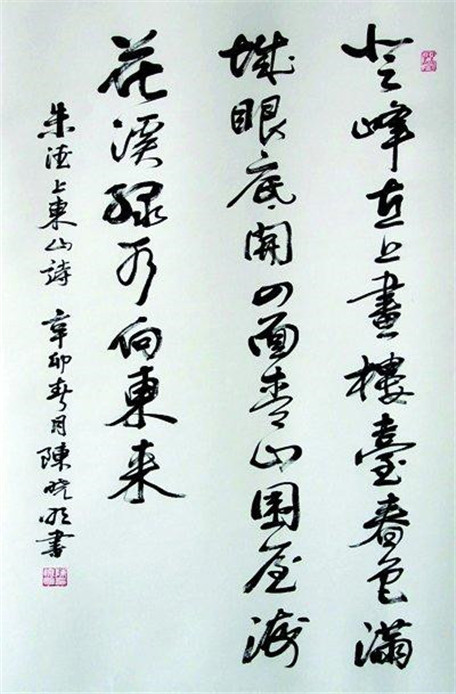 登峰直上畫樓臺春色滿
城眼底開四面青山圍屋海
花溪綠水向東来
朱德上東山詩 辛卯春月陳曉明書